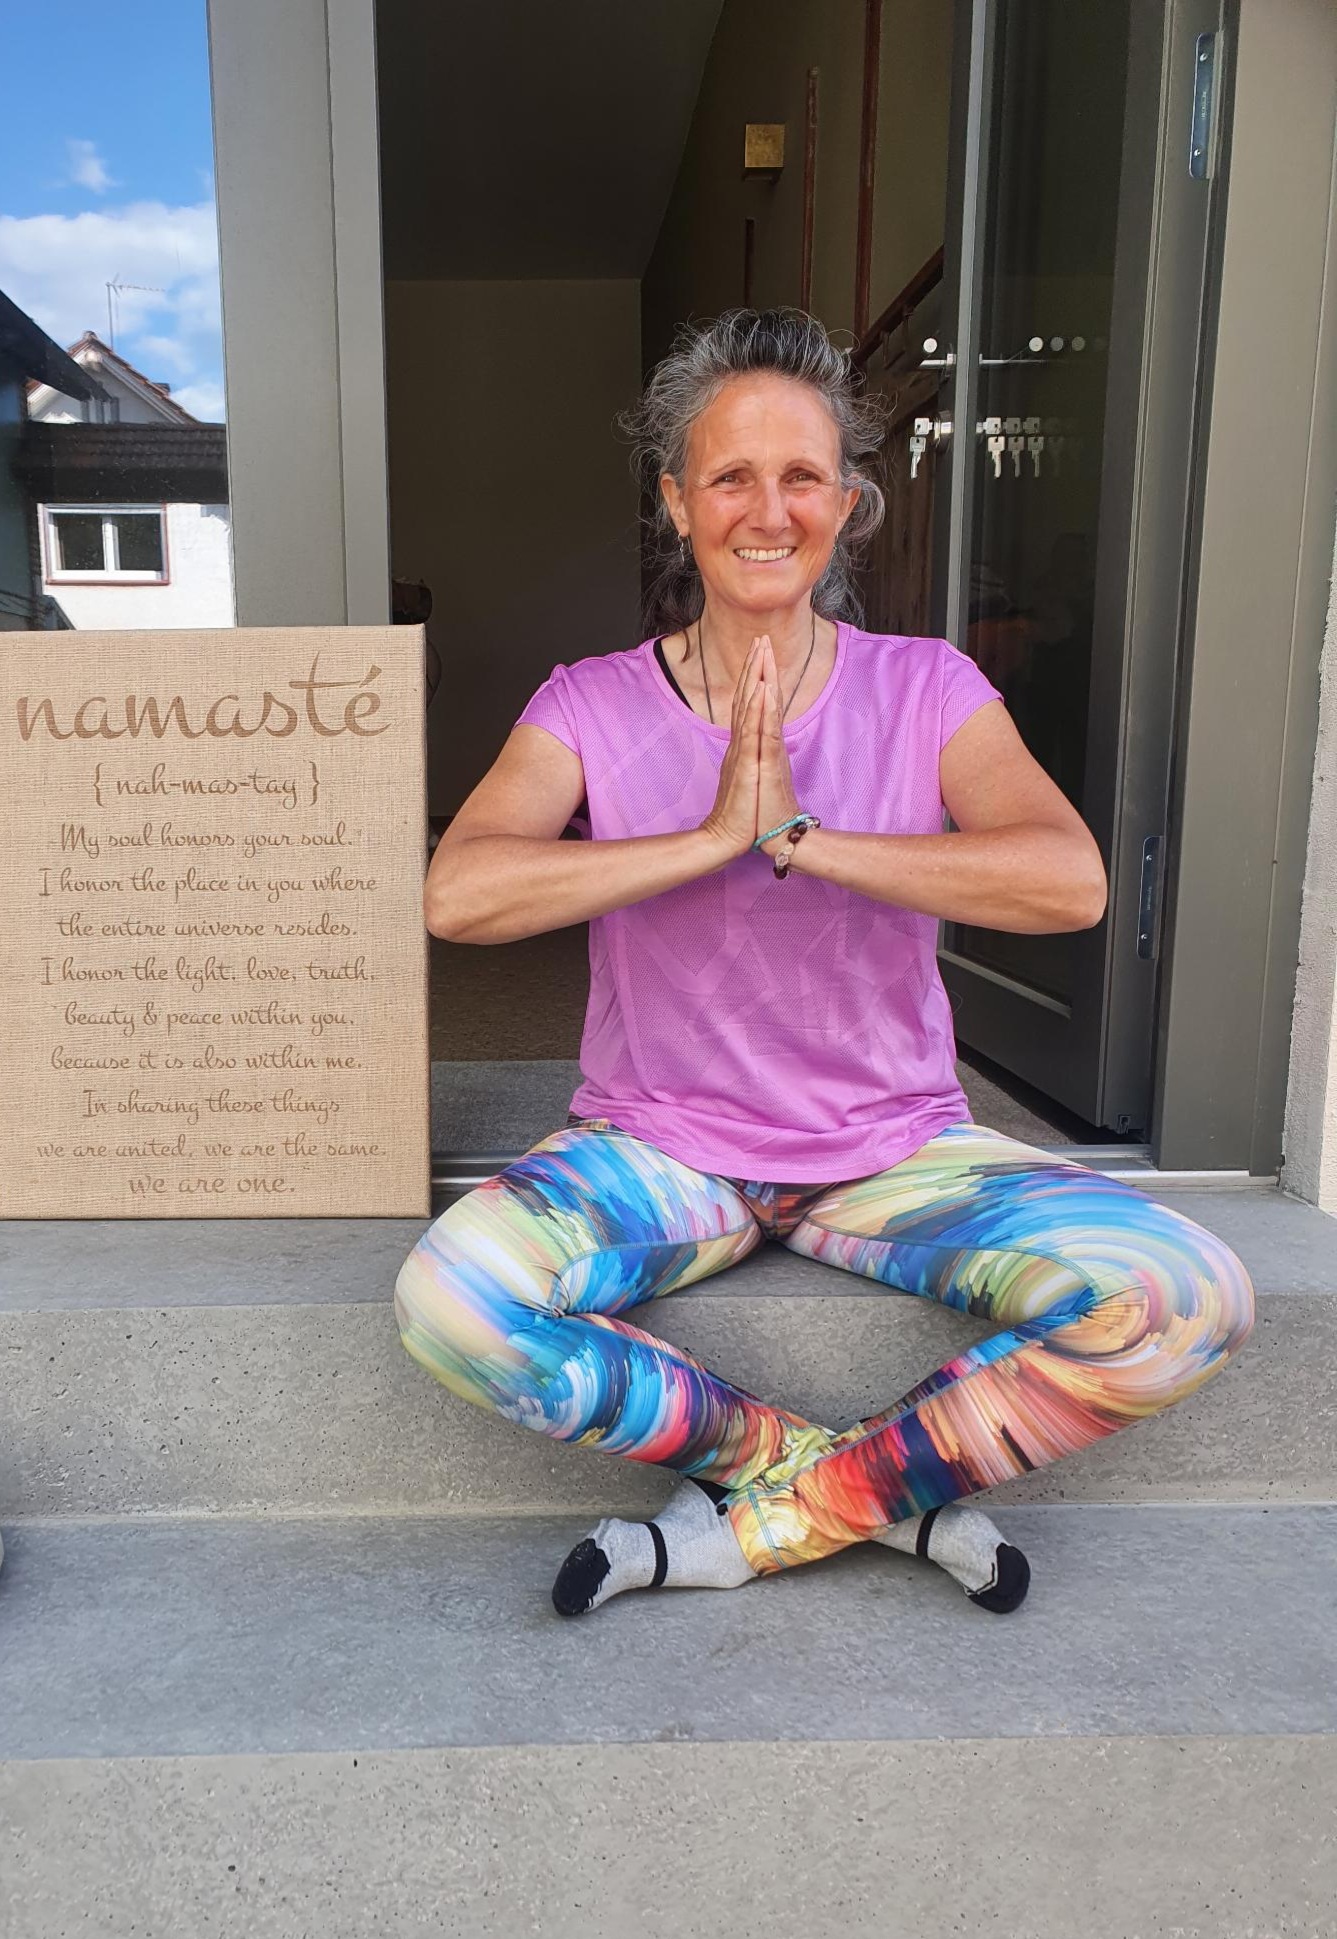 namasté
{ nah-mas-tay }
My soul honors your soul.
I honor the place in you where
the entire universe resides.
I honor the light, love, truth,
beauty & peace within you,
because it is also within me.
In sharing these things
we are united, we are the same,
we are one.